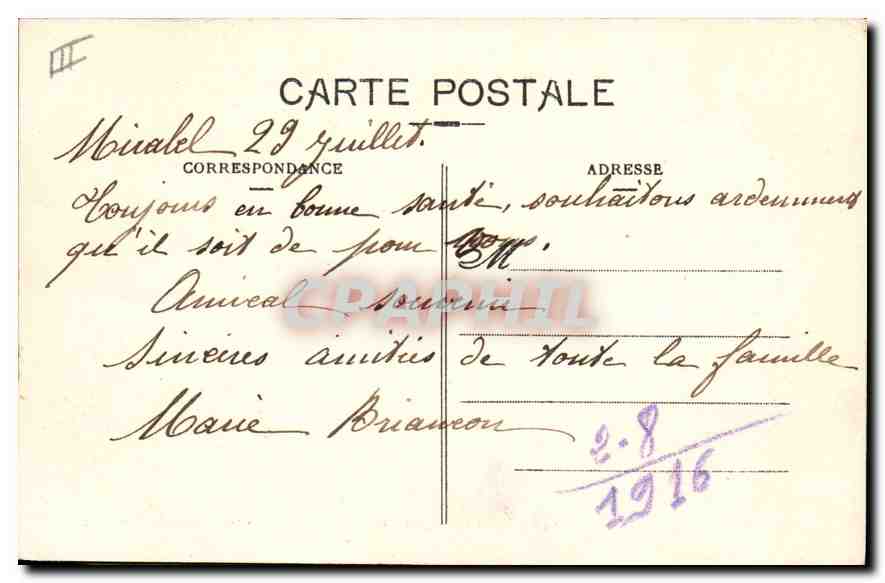 III
CARTE POSTALE
Mirabel 29 juillet.
CORRESPONDANCE
ADRESSE
Toujours en bonne santé, souhaitons ardemment
qu'il soit de pour vous.
M
CPAPHIL
Amical souvenir
Sincères amitiés de toute la famille
Marie Briançon
2-8
1916